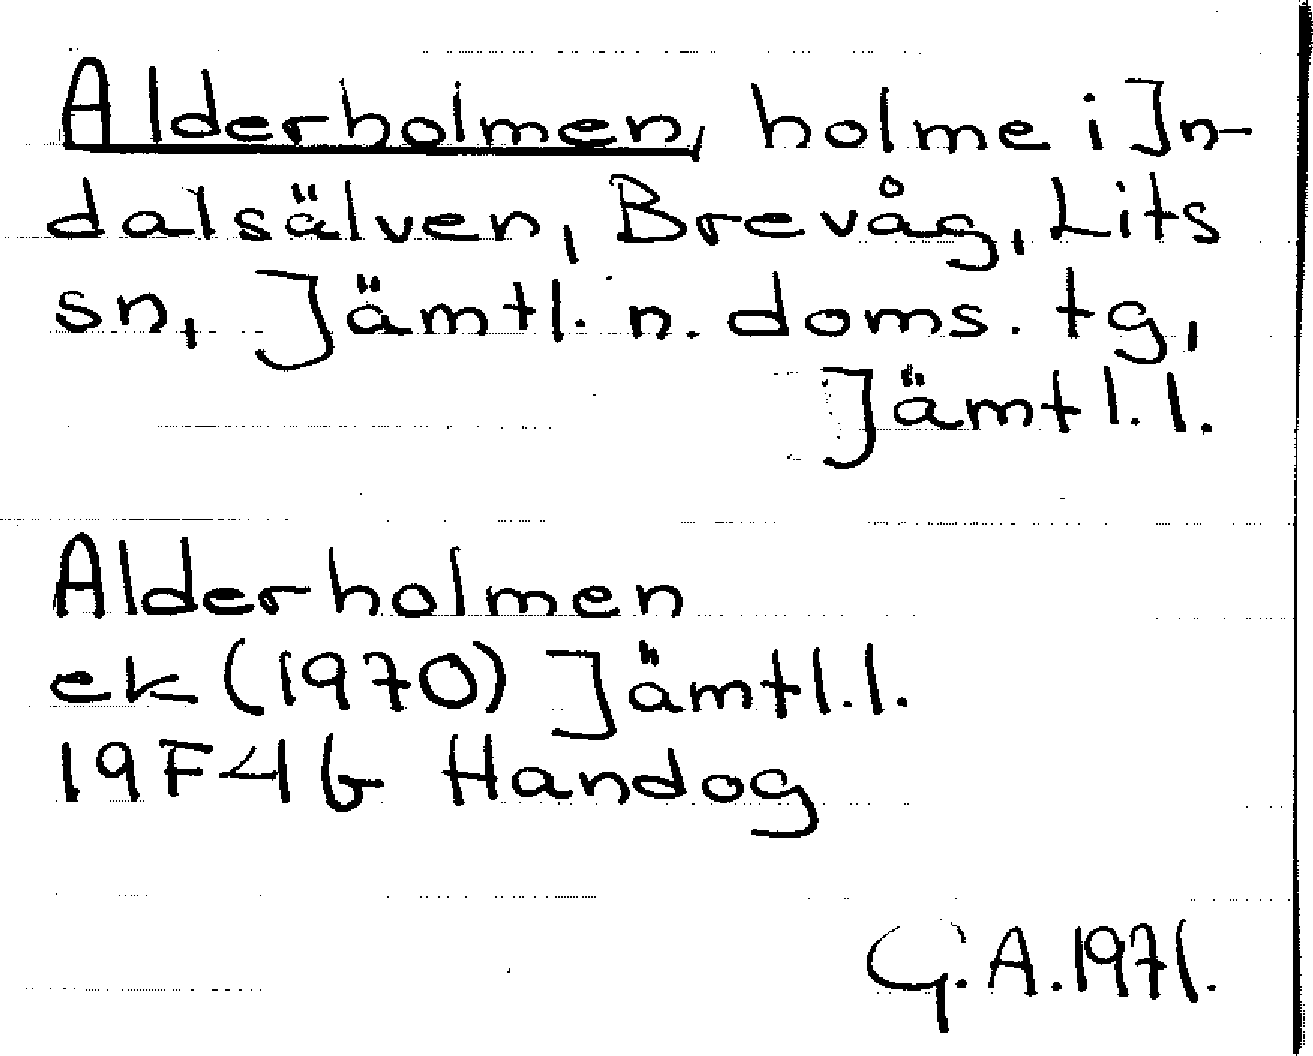 Alderholmen, holme i In-
dalsälven, Brevåg, Lits
sn, Jämtl. n. doms. tg,
Jämtl. l.
Alderholmen
ek (1970) Jämtl. l.
19F4b Handog
G. A. 1971.